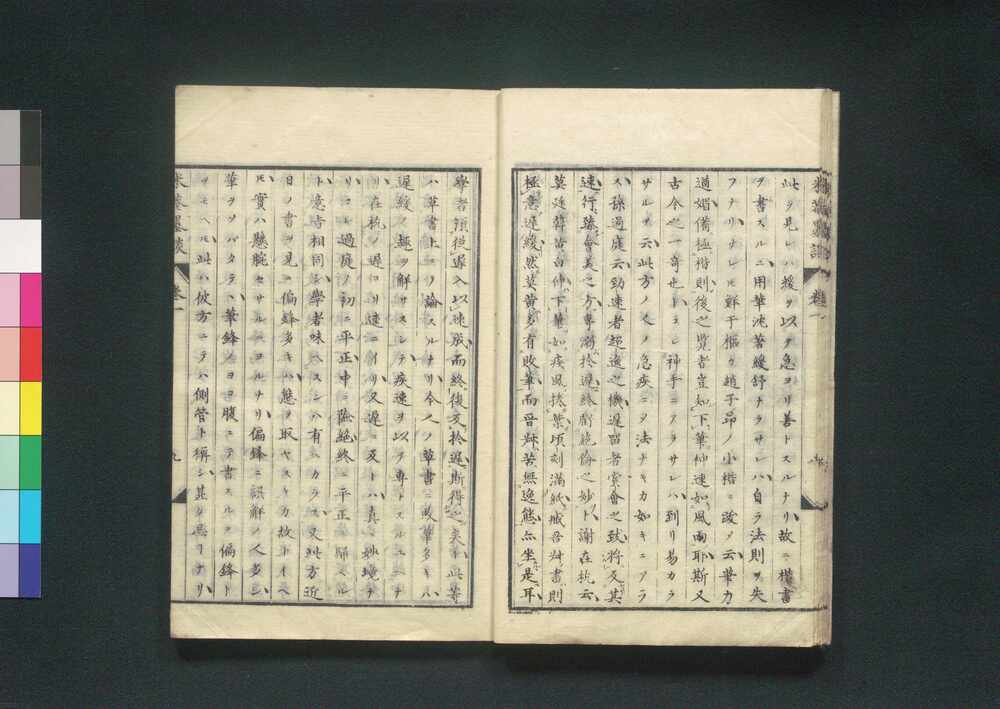 此ヲ見レハ援ヲ以テ急ヨリ善トスルナリ故ニ楷書
ヲ書スルニ用筆沈著緩舒ナラサレハ自ラ法則ヲ失
フナリサレヒ鮮于樞カ趙子昂ノ小楷ニ跋ノ云筆力
遒媚備極楷則後之覧者豈知下筆神速如風雨耶斯又
古今之一奇也トコレ神手ニアラサレハ到リ易カラ
サルナ云此方ノ人ノ急疾ニヲ法ナキカ如キニアラ
ス孫過庭云勁速者超逸之機遅留者賞會之致将反其
速行臻會美之方専溺於遅終爽絶倫之妙ト謝在杭云
莫廷韓黄白仲下筆如疾風捲葉頃刻満紙戒吾艸書則
極意遅緩然莫黄多有敗筆而晋艸苦無逸態亦坐是耳
學者須從遅入以速成而終復反於遅斯得之矣ト此等
ハ草書上ニノ論スルナリ今人ノ草書ニ敗筆多キハ
遅緩ノ趣ヲ解サスシテ疾速ヲ以テ専トスルユヘナ
リ在杭ノ遅ニ入リ速ニ到リ又遅ニ反トハ真ノ妙境ナ
リコレ過庭ノ初ニ平正中ニ險絶終ニ平正ニ歸スル
ト境時相同シ學者味ハスンハ有ヘカラス又此方近
日ノ書ヲ見ニ偏鋒多キハ態ヲ取ヤスキカ故トイヘ
ヒ實ハ懸腕セサルニヨルナリ偏鋒ニ誤解ノ人多シ
筆ヲソハタテヽ筆鋒ノヨコ腹ニテ書スルヲ偏鋒ト
ヲモヘヒ此ハ彼方ニテハ側管ト稱シ其ノ悪ヲナリ